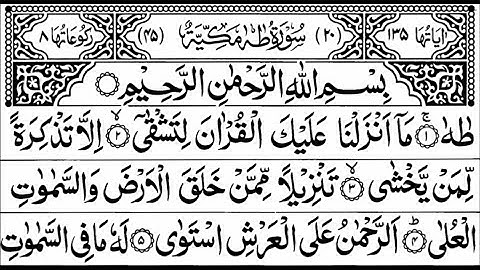 اٰيَاتُهَا ۱۳۵ (۲۰) سُوْرَةُ طٰهٰ مَكِّيَّةٌ (۴۵) رُكُوْعَاتُهَا ۸
بِسْمِ اللهِ الرَّحْمٰنِ الرَّحِيْمِ
طٰهٰ ۱ مَاۤ اَنْزَلْنَا عَلَيْكَ الْقُرْاٰنَ لِتَشْقٰۤى ۲ اِلَّا تَذْكِرَةً
لِّمَنْ يَّخْشٰى ۳ تَنْزِيْلًا مِّمَّنْ خَلَقَ الْاَرْضَ وَالسَّمٰوٰتِ
الْعُلٰى ۴ اَلرَّحْمٰنُ عَلَى الْعَرْشِ اسْتَوٰى ۵ لَهٗ مَا فِى السَّمٰوٰتِ